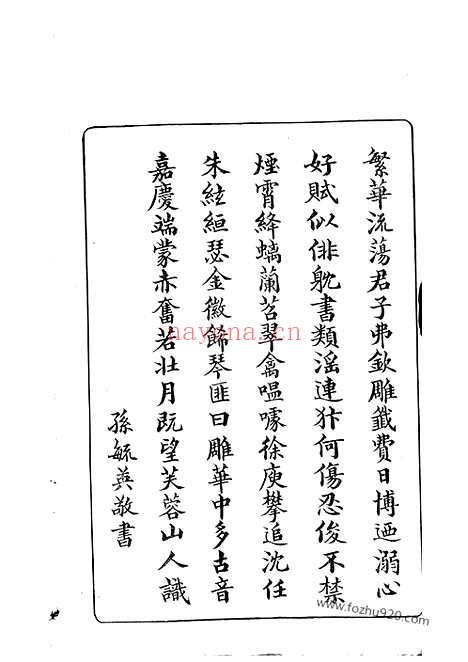 繁華流蕩君子弗欽雕籤費日博迺溺心
好賦似俳躭書類滛連犿何傷忍俊不禁
煙霄絳螭蘭苕翠禽嗢噱徐庾攀追沈任
朱絃絙瑟金徽飾琴匪曰雕華中多古音
嘉慶端蒙赤奮若壯月既望芙蓉山人識
孫毓英敬書
nayona.cn
www.fozhu920.com